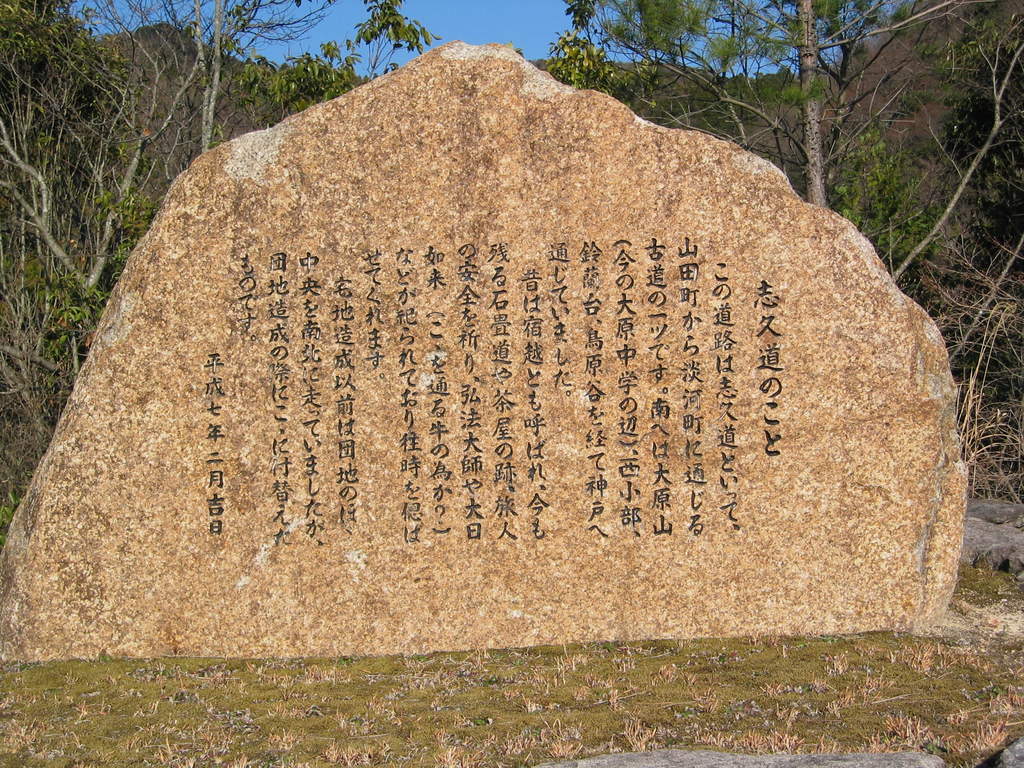 志久道のこと
この道路は志久道といって、
山田町から淡河町に通じる
古道の一ツです。南へは大原山
(今の大原中学の辺)、西小部、
鈴蘭台、鳥原谷を経て神戸へ
通じていました。
昔は宿越とも呼ばれ、今も
残る石畳道や茶屋の跡、旅人
の安全を祈り、弘法大師や大日
如来(こゝを通る牛の為か?)
などが祀られており往時を偲ば
せてくれます。
宅地造成以前は団地のほゞ
中央を南北に走っていましたが、
団地造成の際にこゝに付替えた
ものです。
平成七年二月吉日